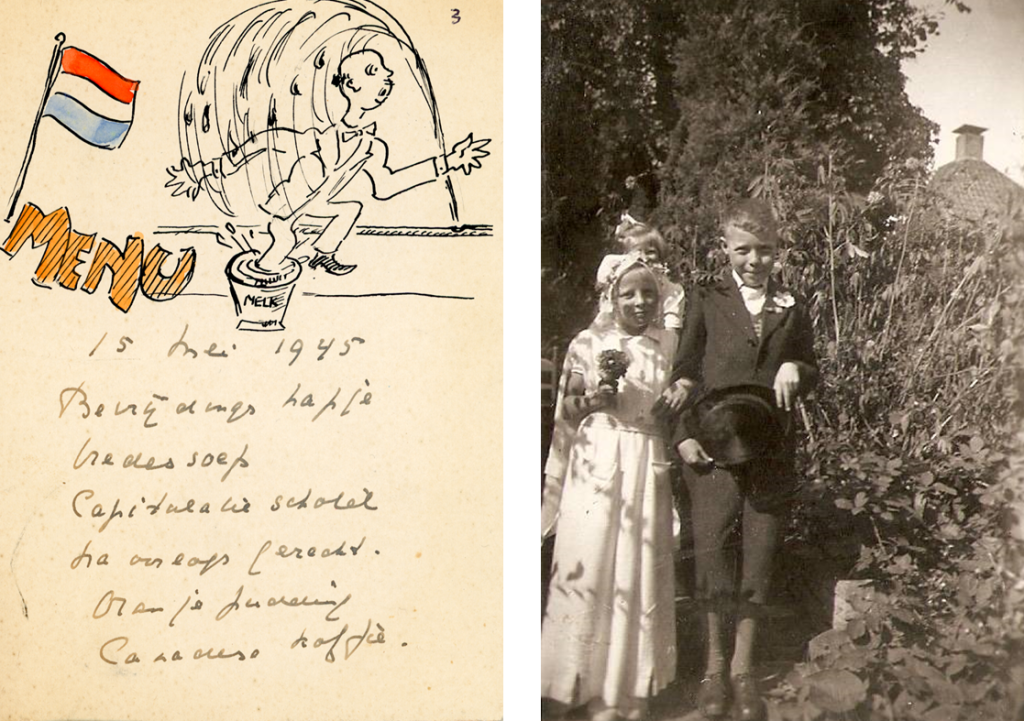 3
MENU
MELK
15 Mei 1945
Bevrijdings hapje
Vredes soep
Capitulatie schotel
Na oorlogs gerecht.
Oranje pudding
Canadese koffie.